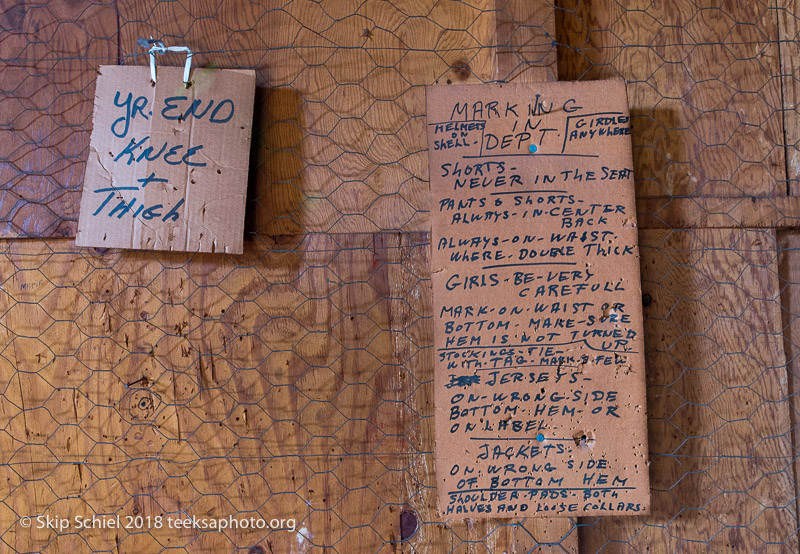 YR. END
KNEE
+
THIGH
MARKING
IN
DEPT.
HELMETS
ON
SHELL-
GIRDLES
ANYWHERE
SHORTS-
NEVER IN THE SEAT
PANTS & SHORTS-
ALWAYS-IN-CENTER
BACK
ALWAYS-ON-WAIST
WHERE-DOUBLE THICK
GIRLS-BE-VERY
CAREFULL
MARK-ON-WAIST OR
BOTTOM-MAKE-SURE
HEM IS NOT TURNED
UP
STOCKINGS-TIE-
WITH-TAG-MARK-A FEW
JERSEYS-
ON-WRONG-SIDE
BOTTOM-HEM-OR
ON LABEL
JACKETS-
ON WRONG SIDE
OF BOTTOM HEM
SHOULDER-PADS-BOTH
HALVES AND LOOSE COLLARS.
© Skip Schiel 2018 teeksaphoto.org